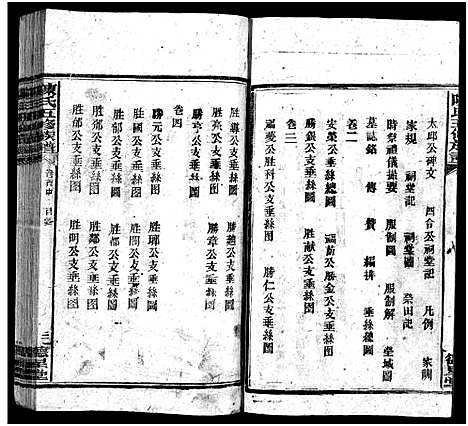 太邱公碑文
四合公祠堂記
凡例
家訓
家規
祠堂記
祠堂圖
祭田記
時祭禮儀撮要
服制圖
服制解
塋域圖
卷二
墓誌銘
傳
贊
編排
垂絲總圖
安榮公支垂絲總圖
勝金公支垂絲圖
勝銀公支垂絲圖
胜献公支垂絲圖
卷三
榮公胜科公支垂絲圖
勝仁公支垂絲圖
公支垂絲圖
勝趙公支垂絲圖
胜亮公支垂絲圖
勝章公支垂絲圖
卷四
勝元公支垂絲圖
胜國公支垂絲圖
胜耶公支垂絲圖
胜都公支垂絲圖
胜郁公支垂絲图
胜鄰公支垂絲图
胜鄒公支垂絲图
胜明公支垂絲图
陳氏五修族譜
卷首
目錄